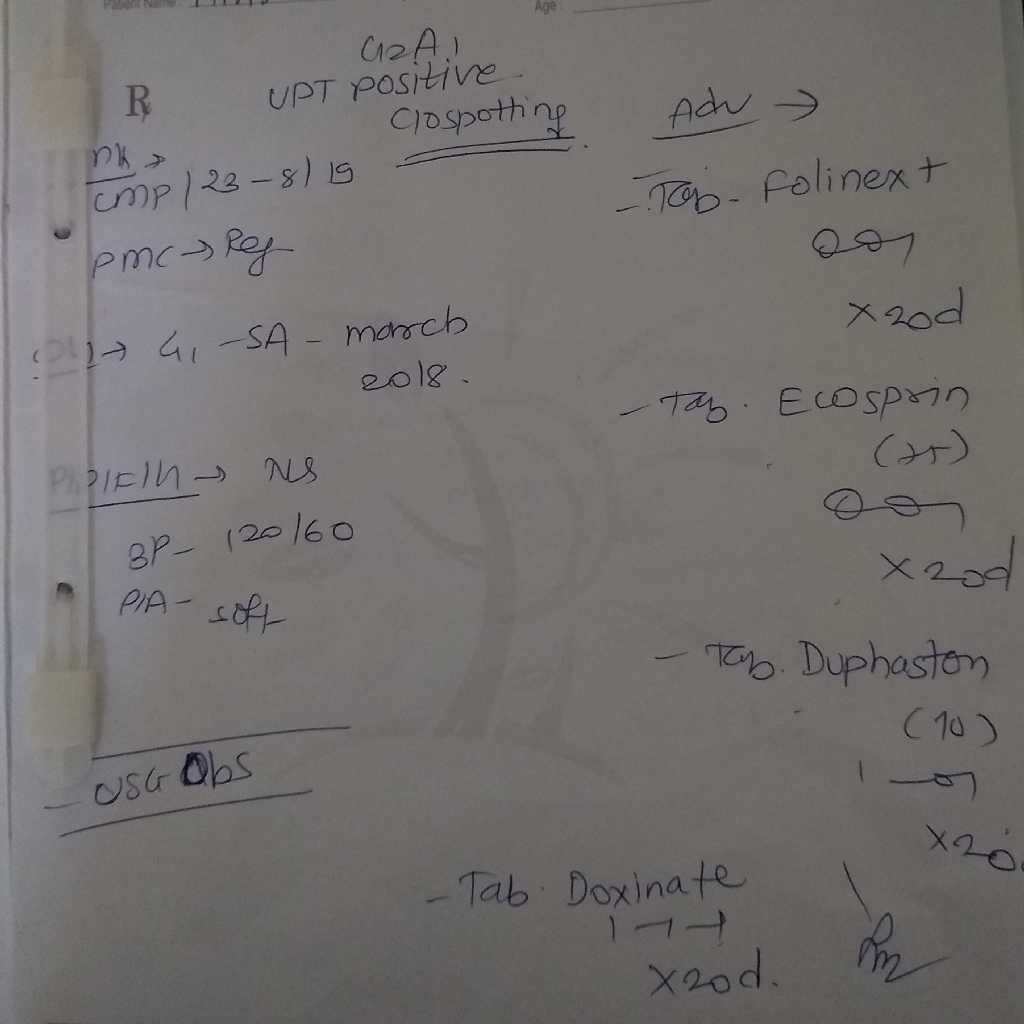 Patient Name
Age
G2A1
UPT positive
C/o spotting
R
LMP / 23-8/19
PMC → Reg
→ G1 - SA - march
2018.
→ NS
BP - 120/60
P/A - soft
- USG Obs
Adv →
- Tab - Folinext
x 20d
- Tab. Ecosprin
(75)
x 20d
- Tab. Duphaston
(10)
x 20
- Tab. Doxinate
1-1-1
x 20d.